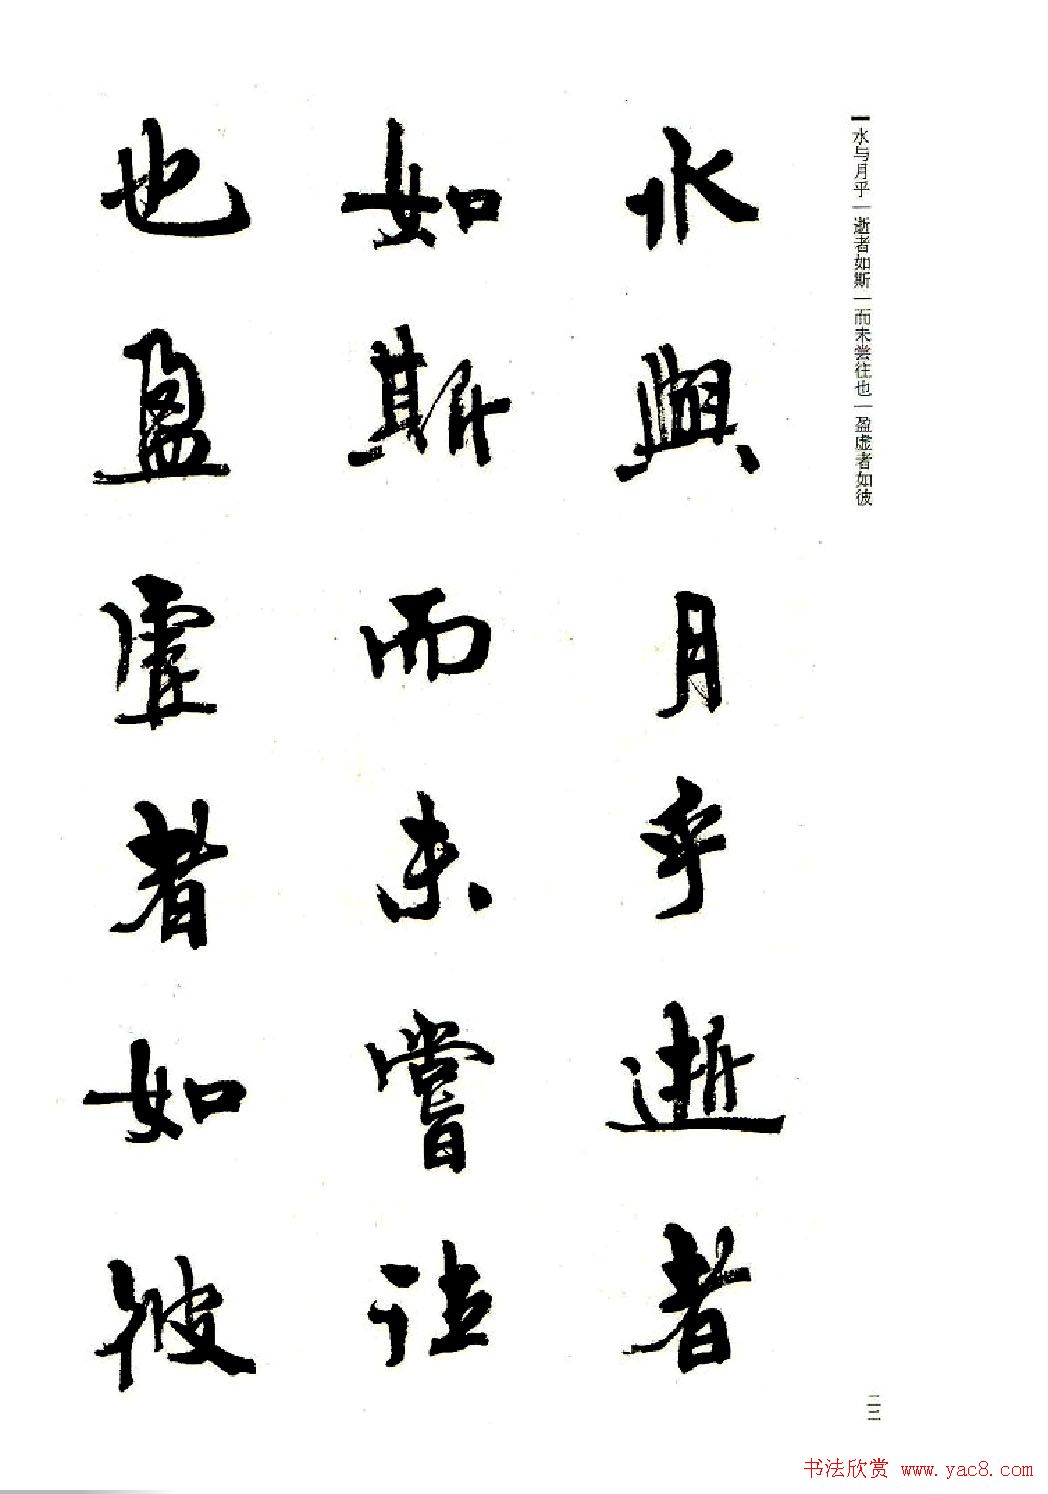 一水与月乎一逝者如斯一而未尝往也一盈虚者如彼
水與月乎逝者
如斯而未嘗往
也盈虛者如彼
二二
书法欣赏 www.yac8.com